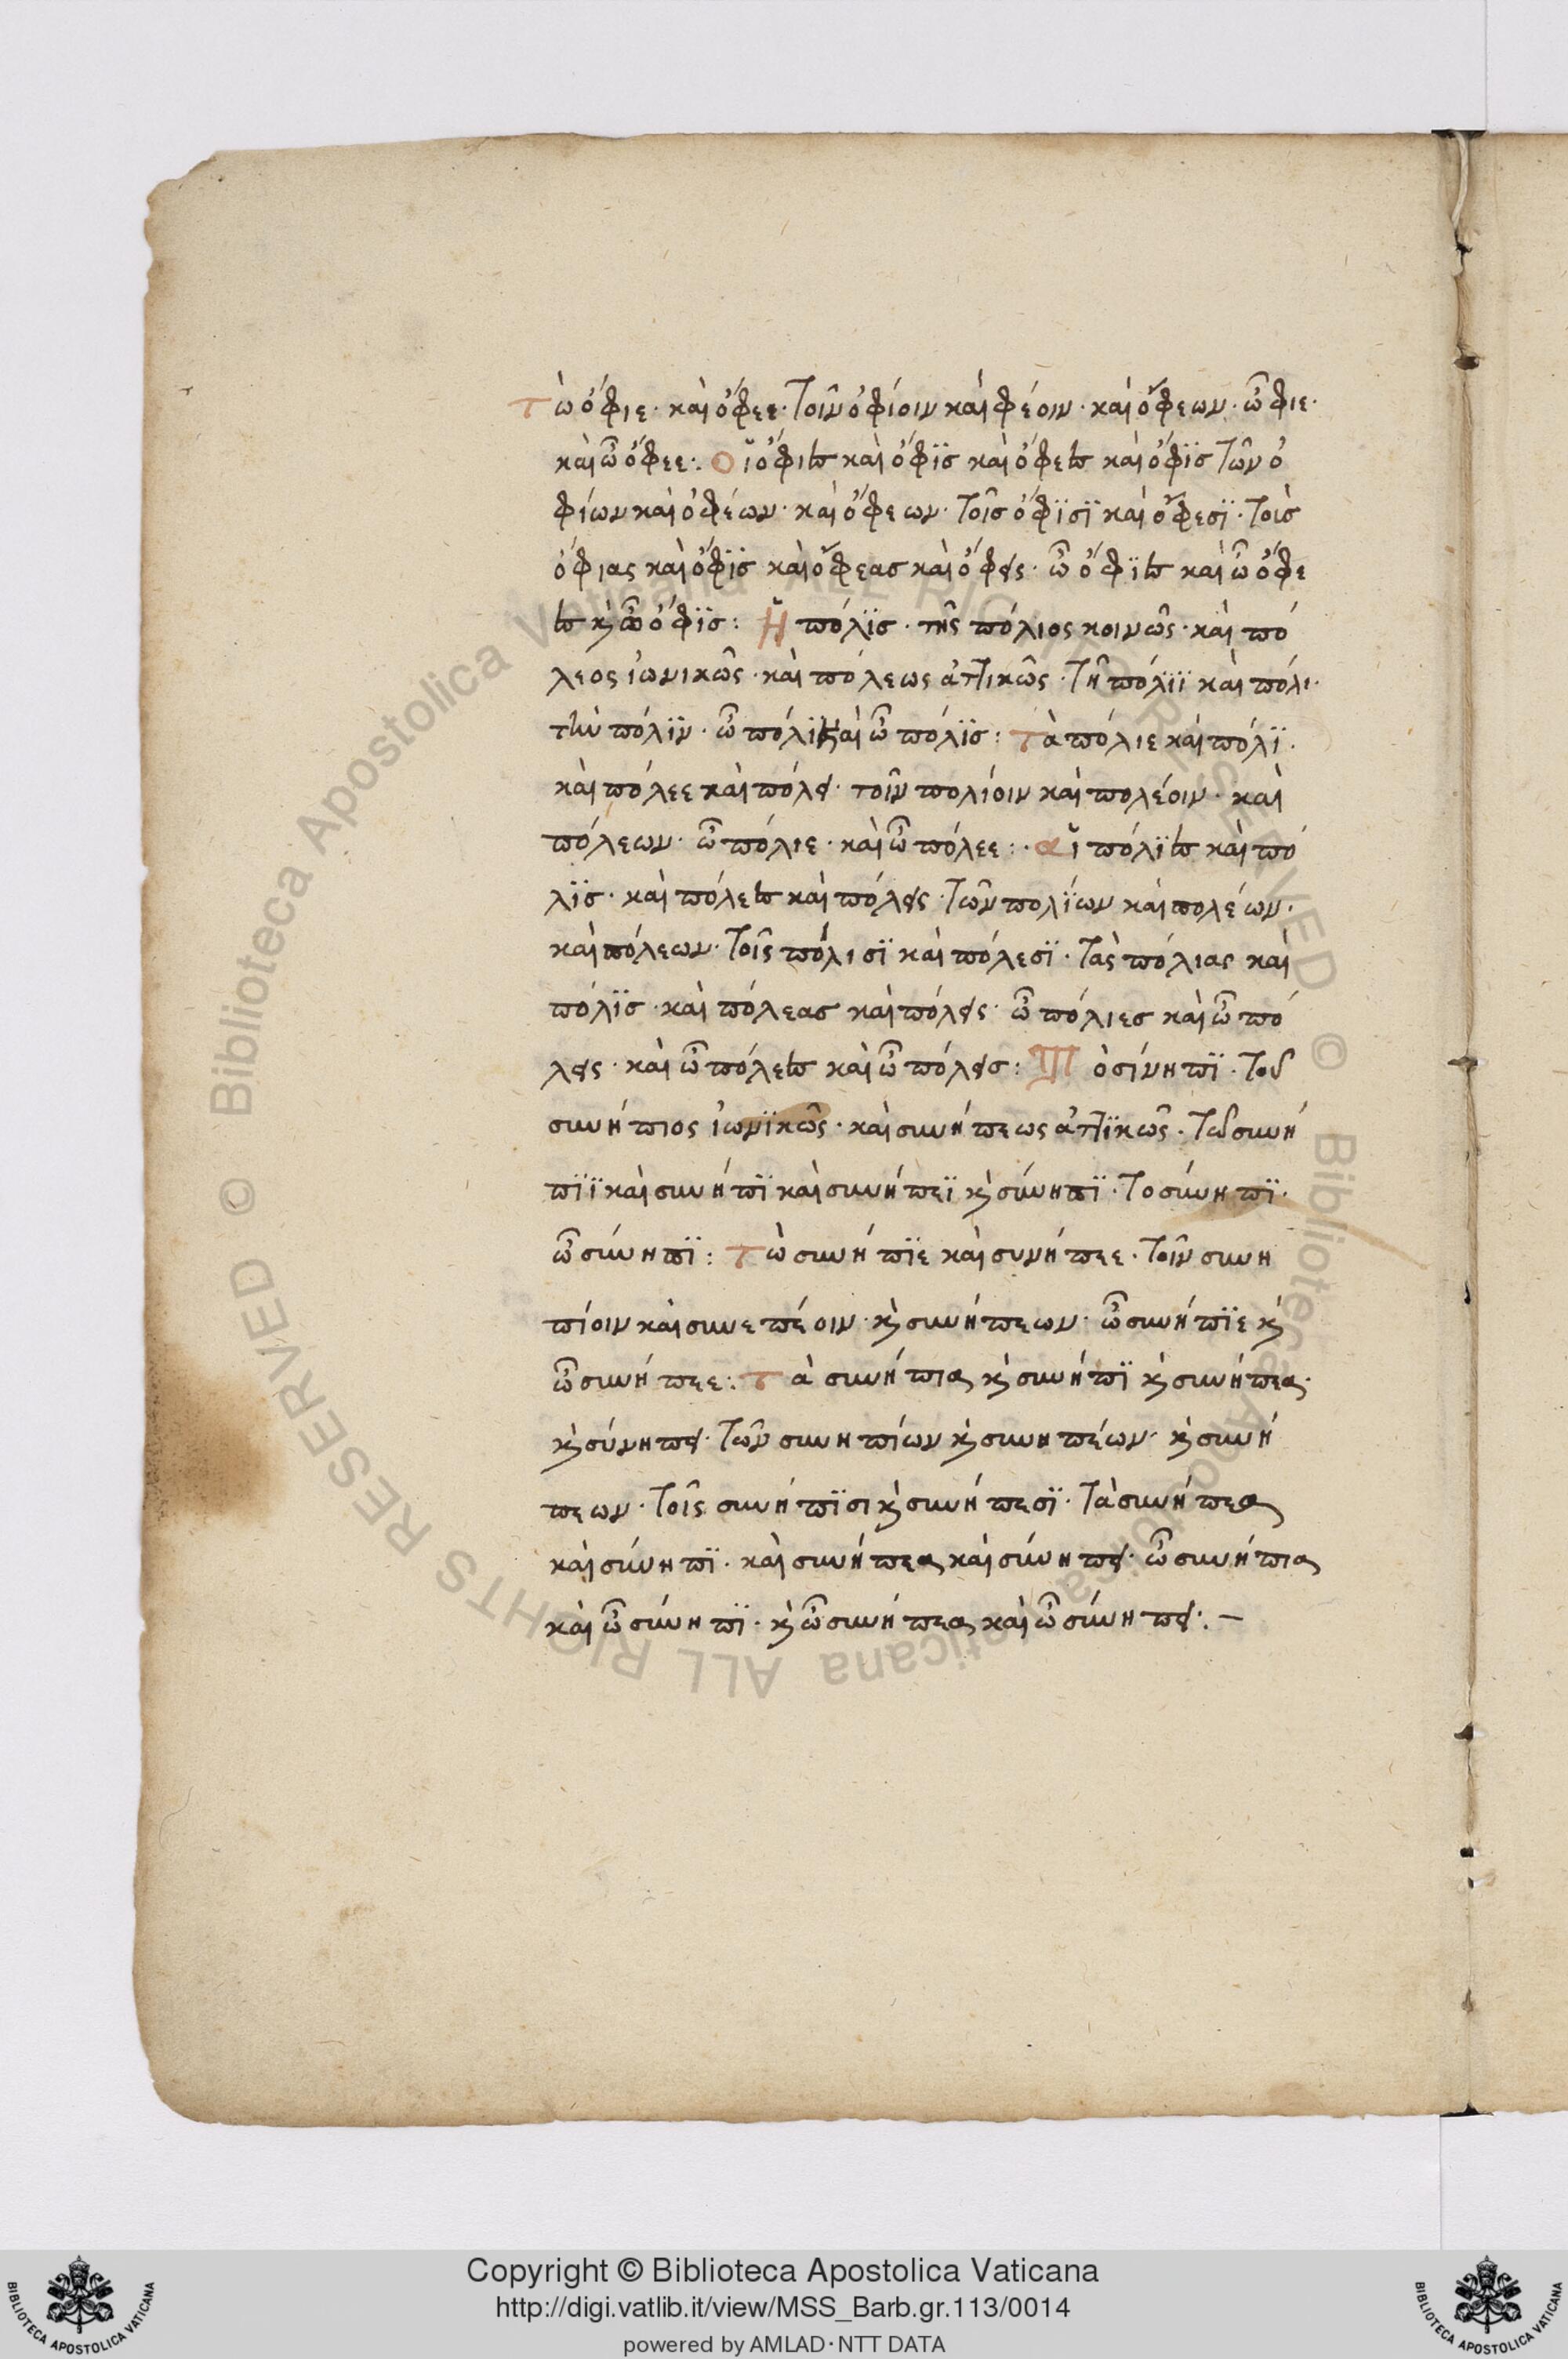 Τὼ ὄφιε· καὶ ὄφεε· Τοῖν ὀφίοιν καὶ φέοιν· καὶ ὄφεων· ὦ φιε·
καὶ ὦ ὄφεε:. Οἱ ὄφιες καὶ ὄφϊς καὶ ὄφεες καὶ ὄφϊς Τῶν ὀ
φίων καὶ ὀφέων· καὶ ὄφεων· Τοῖς ὄφϊσϊ καὶ ὄφεσϊ· Τοὺς
ὄφιας καὶ ὄφϊς καὶ ὄφεας καὶ ὄφεις· ὦ ὄφϊες καὶ ὦ ὄφε
ες κὶ ὦ ὄφϊς: Ἡ πόλϊς· τῆς πόλιος κοινῶς· καὶ πό
λεος ἰωνικῶς· καὶ πόλεως ἀττικῶς· Τῆ πόλϊϊ καὶ πόλι·
τὴν πόλϊν· ὦ πόλϊ καὶ ὦ πόλϊς: Τὰ πόλιε καὶ πόλϊ·
καὶ πόλεε καὶ πόλει· τοῖν πολίοιν καὶ πολέοιν· καὶ
πόλεων· ὦ πόλιε· καὶ ὦ πόλεε:· αἱ πόλϊες καὶ πό
λϊς· καὶ πόλεες καὶ πόλεις· Τῶν πολΐων καὶ πολέων·
καὶ πόλεων· Τοῖς πόλισϊ καὶ πόλεσϊ· Τὰς πόλιας καὶ
πόλϊς· καὶ πόλεας καὶ πόλεις· ὦ πόλιες καὶ ὦ πό
λεις· καὶ ὦ πόλεες καὶ ὦ πόλεις: Τὸ σίνηπϊ· Τοῦ
σινήπιος ἰωνϊκῶς· καὶ σινήπεως ἀττϊκῶς· Τῶ σινή
πϊϊ καὶ σινήπϊ καὶ σινήπεϊ κὶ σίνηπϊ· Το σίνηπϊ·
ὦ σίνηπϊ: Τὼ σινήπϊε καὶ συνήπεε· Τοῖν σινη
πίοιν καὶ σινεπέοιν· κὶ σινήπεων· ὦ σινήπϊε κὶ
ὦ σινήπεε:. Τὰ σινήπια κὶ σινήπϊ κὶ σινήπεα·
κὶ σύνηπει· Τῶν σινηπίων κὶ σινηπέων· κὶ σινή
πεων· Τοῖς σινήπϊσι κὶ σινήπεσϊ· Τὰ σινήπεα
καὶ σίνηπϊ· καὶ σινήπεα καὶ σίνηπει· ὦ σινήπια
καὶ ὦ σίνηπϊ· κὶ ὦ σινήπεα καὶ ὦ σίνηπει:. –
© Biblioteca Apostolica Vaticana ALL RIGHTS RESERVED © Biblioteca Apostolica Vaticana ALL RIGHTS RESERVED
Copyright © Biblioteca Apostolica Vaticana
http://digi.vatlib.it/view/MSS_Barb.gr.113/0014
powered by AMLAD·NTT DATA
BIBLIOTECA APOSTOLICA VATICANA
BIBLIOTECA APOSTOLICA VATICANA